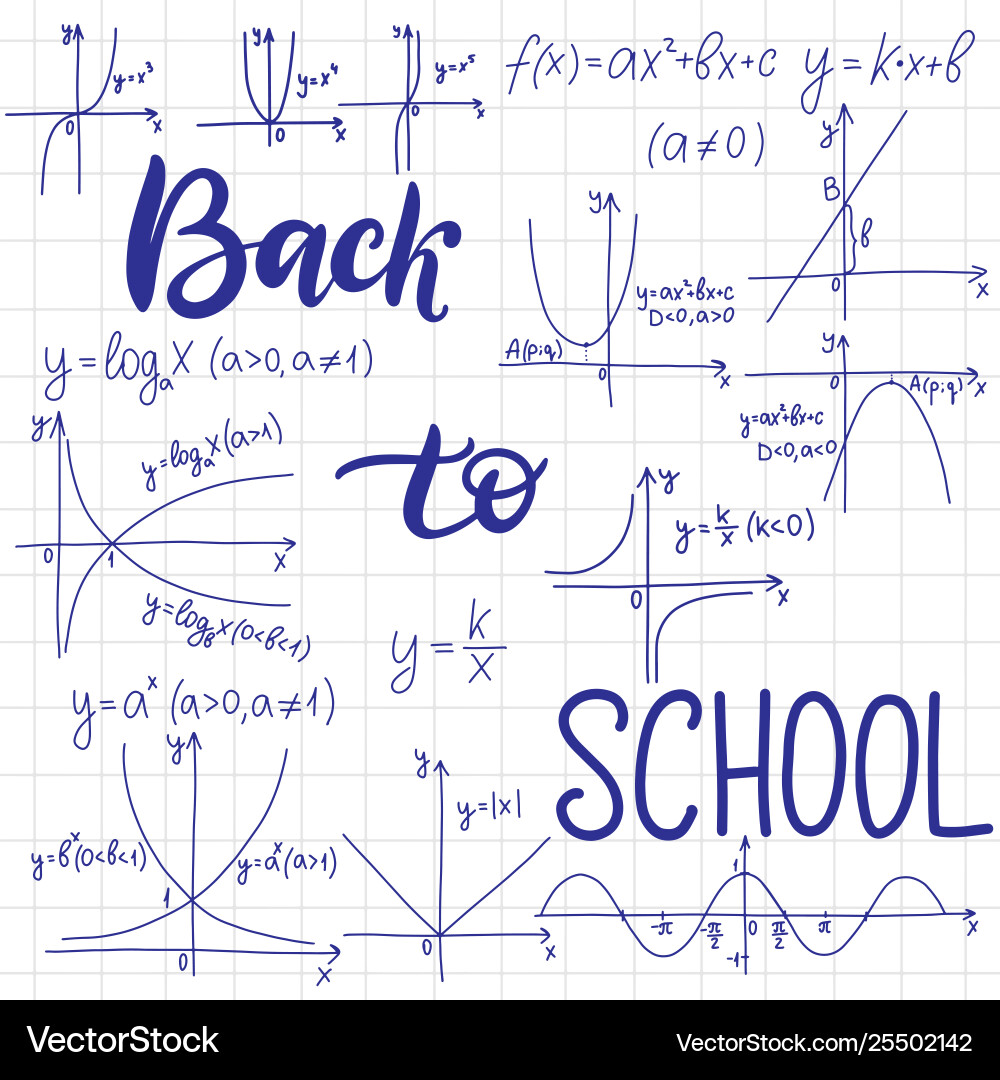 y y y
y=x³ y=x⁴ y=x⁵
0 x 0 x 0 x
f(x)=ax²+bx+c y=k·x+b
(a≠0)
Back
y
B
b
0 x
y
y=ax²+bx+c
D<0,a>0
A(p;q)
0 x
y
0 A(p;q) x
y=ax²+bx+c
D<0,a<0
y=logₐX (a>0,a≠1)
y
y=logₐX(a>1)
0 1 x
y=log_b x(0<b<1)
to
y
y=k/x (k<0)
0 x
y=k/x
y=aˣ (a>0,a≠1)
SCHOOL
y
y=bˣ(0<b<1) y=aˣ(a>1)
1
0 x
y
y=|x|
0 x
1
-π -π/2 0 π/2 π x
-1
VectorStock VectorStock.com/25502142